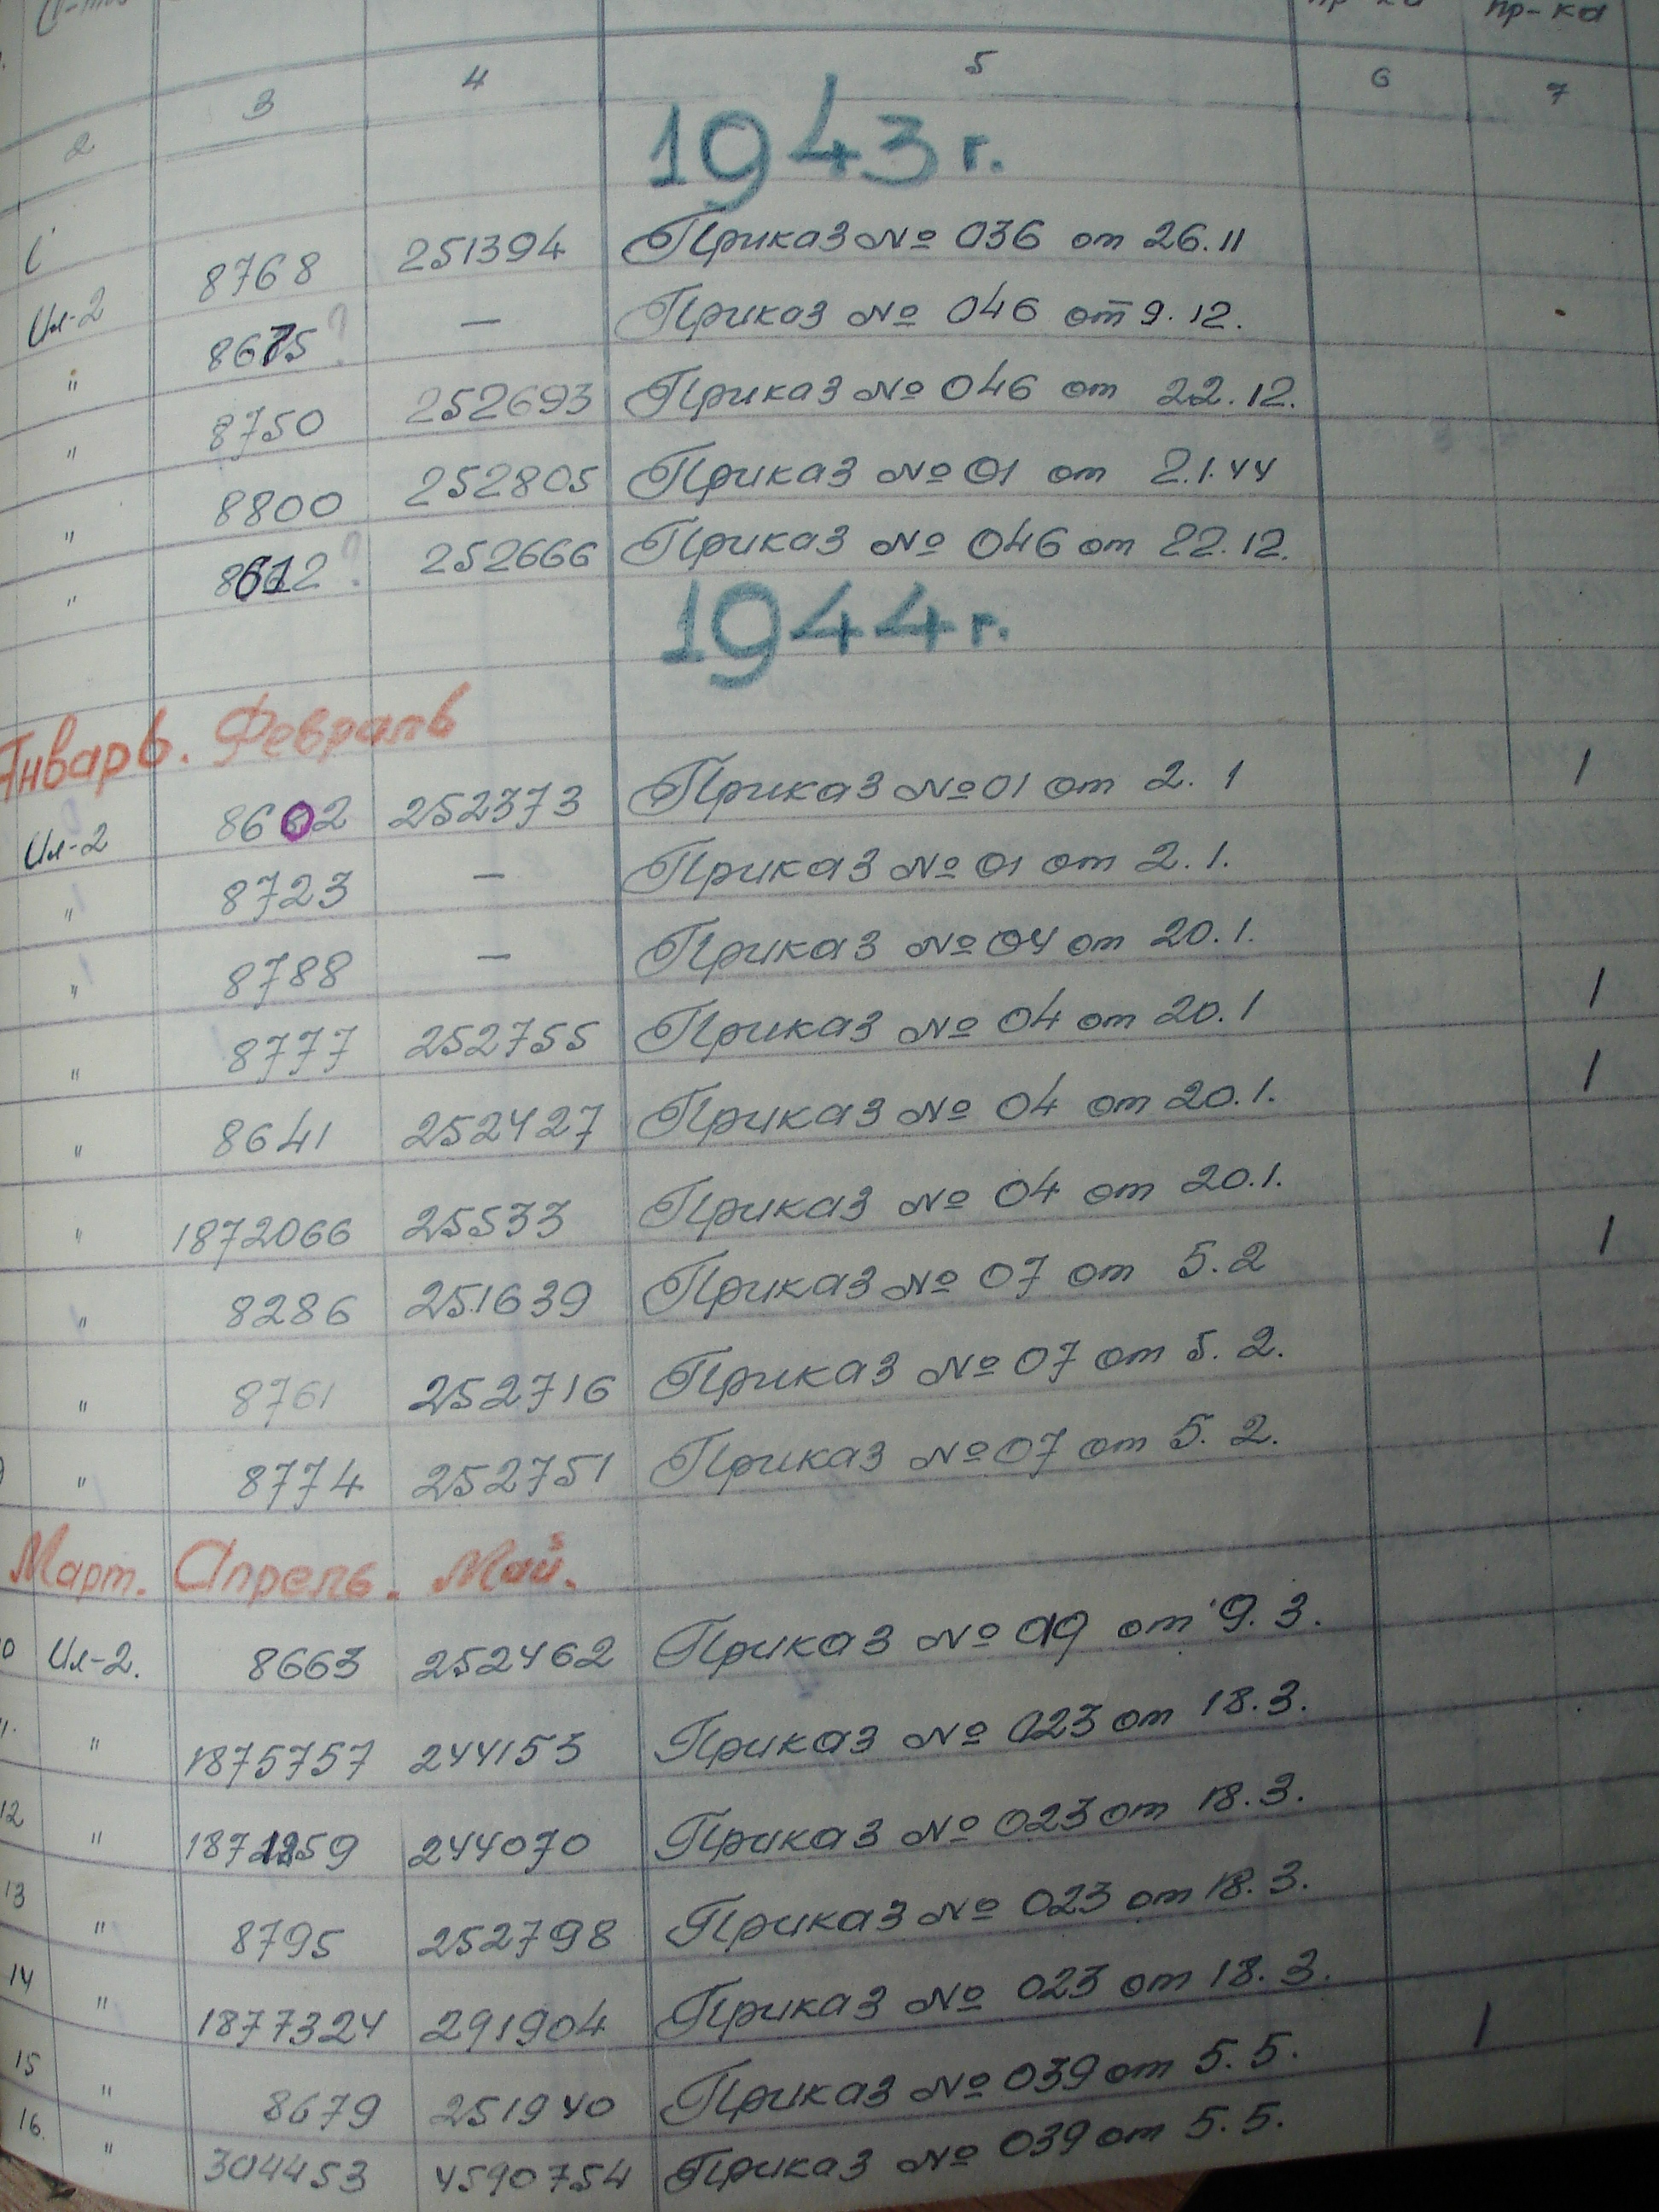 пр-ка
2 3 4 5 6 7
1943 г.
Ил-2 8768 251394 Приказ № 036 от 26.11
" 8675? — Приказ № 046 от 9.12.
" 8750 252693 Приказ № 046 от 22.12.
" 8800 252805 Приказ № 01 от 2.1.44
" 8612? 252666 Приказ № 046 от 22.12.
1944 г.
Январь. Февраль
Ил-2 8602 252373 Приказ № 01 от 2. 1 1
" 8723 — Приказ № 01 от 2. 1.
" 8788 — Приказ № 04 от 20. 1.
" 8777 252755 Приказ № 04 от 20. 1 1
" 8641 252427 Приказ № 04 от 20. 1. 1
" 1872066 25533 Приказ № 04 от 20.1.
" 8286 251639 Приказ № 07 от 5.2 1
" 8761 252716 Приказ № 07 от 5. 2.
" 8774 252751 Приказ № 07 от 5. 2.
Март. Апрель. Май.
10 Ил-2. 8663 252462 Приказ № 019 от 9. 3.
11. " 1875757 244153 Приказ № 023 от 18.3.
12 " 1871259 244070 Приказ № 023 от 18.3.
13 " 8795 252798 Приказ № 023 от 18. 3.
14 " 1877324 291904 Приказ № 023 от 18. 3.
15 " 8679 251940 Приказ № 039 от 5. 5. 1
16. " 304453 4590754 Приказ № 039 от 5. 5.